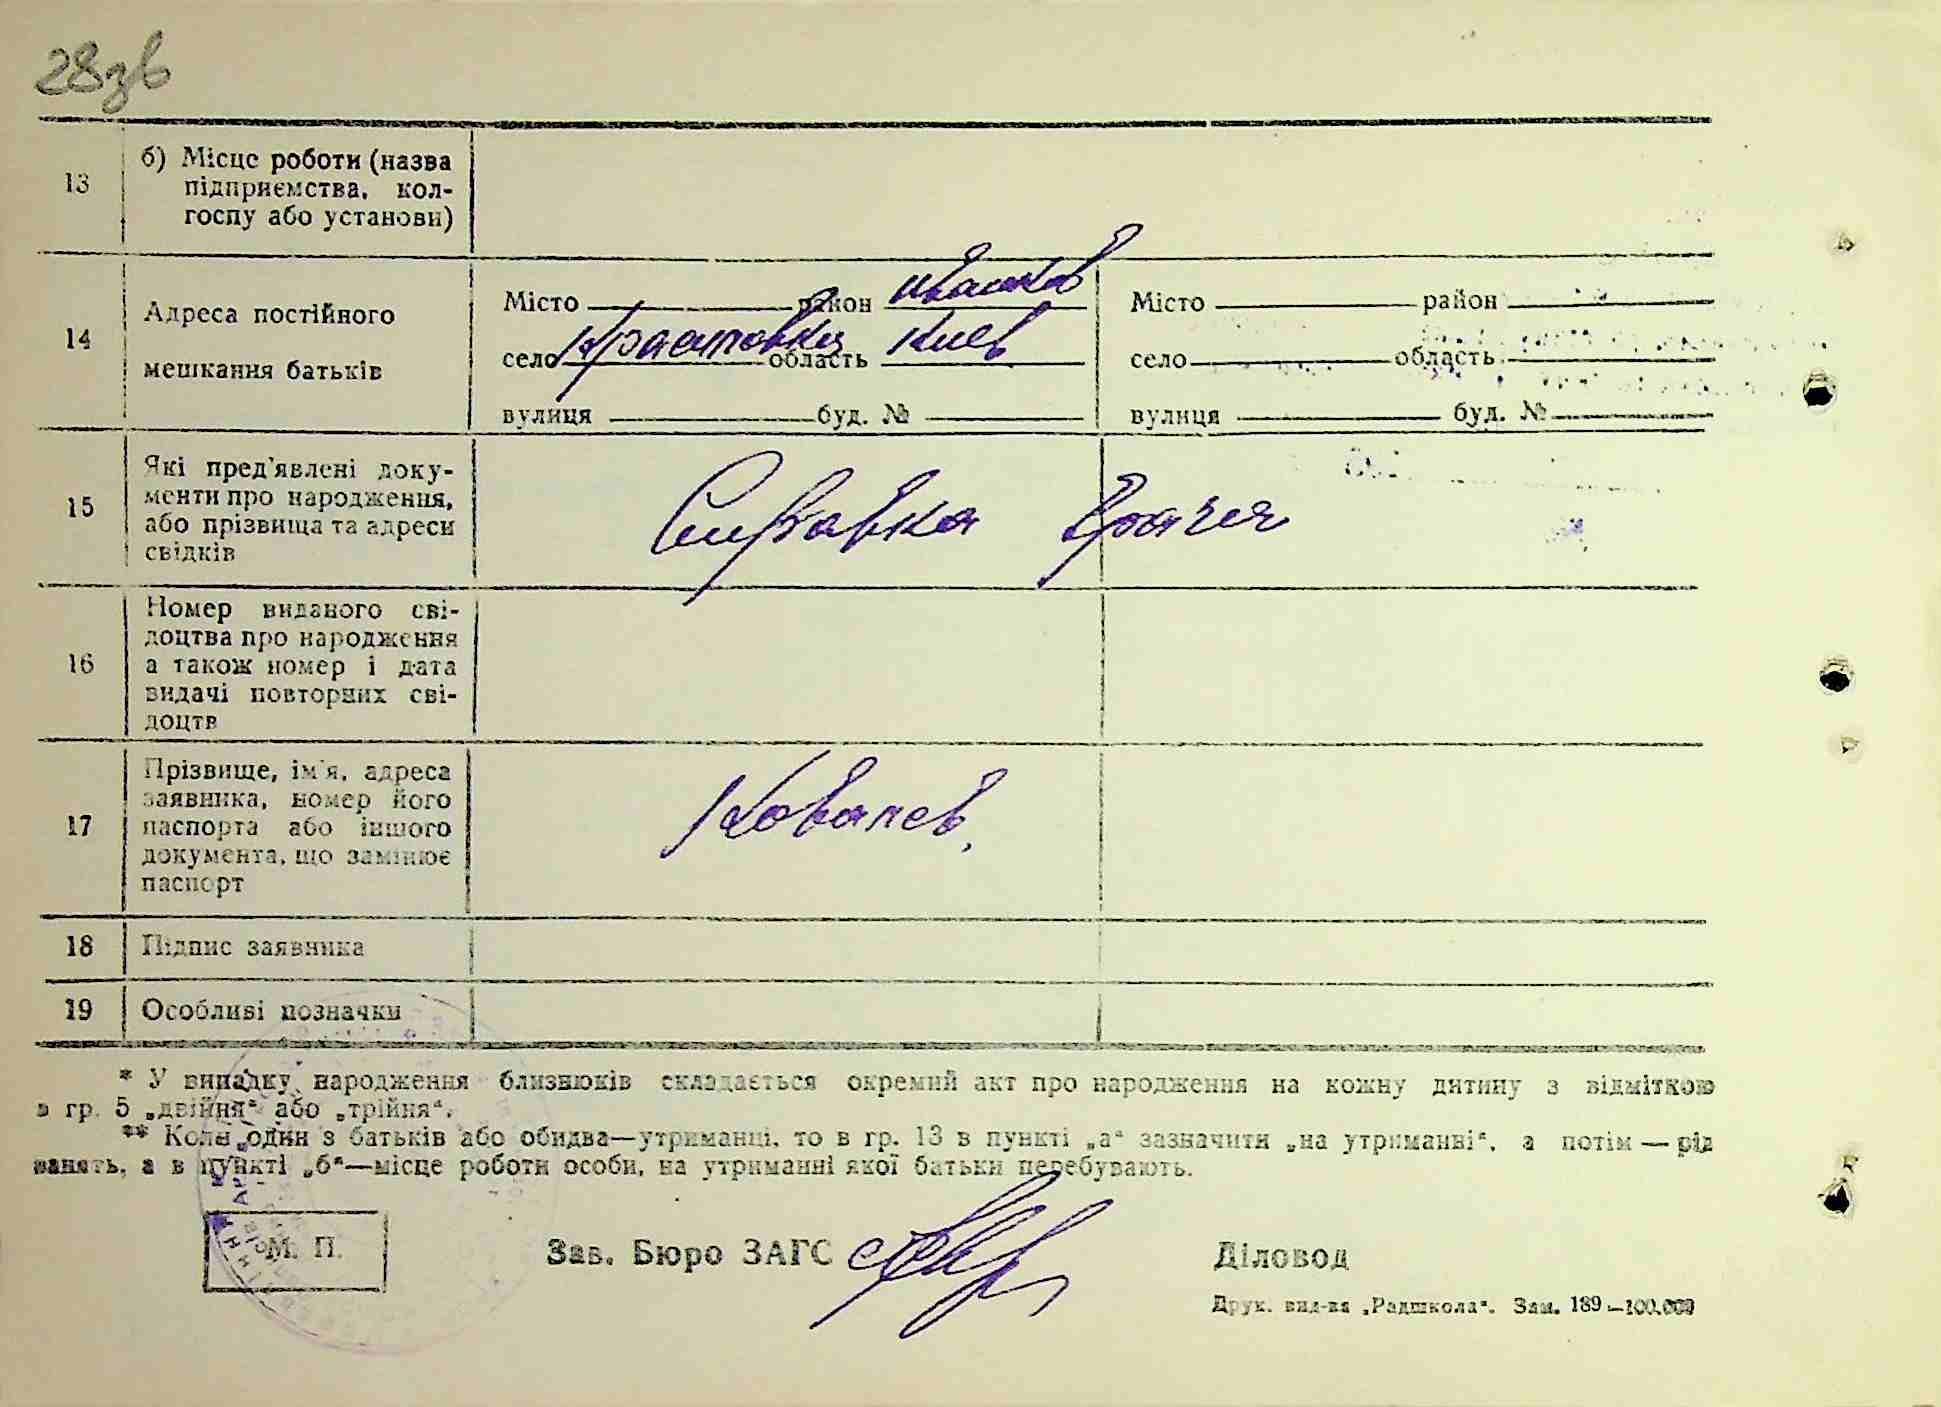 28зв
13
б) Місце роботи (назва
підприємства, кол-
госпу або установи)
14
Адреса постійного
мешкання батьків
Місто район Іванков
село область Киев
вулиця буд. №
Місто район
село область
вулиця буд. №
15
Які пред'явлені доку-
менти про народження,
або прізвища та адреси
свідків
Справка врача
16
Номер виданого сві-
доцтва про народження
а також номер і дата
видачі повторних сві-
доцтв
17
Прізвище, ім'я, адреса
заявника, номер його
паспорта або іншого
документа, що замінює
паспорт
Ковалев.
18
Підпис заявника
19
Особливі позначки
* У випадку народження близнюків складається окремий акт про народження на кожну дитину з відміткою
в гр. 5 „двійня“ або „трійня“.
** Коли один з батьків або обидва—утриманці, то в гр. 13 в пункті „а“ зазначити „на утриманні“, а потім — рід
занять, а в пункті „б“—місце роботи особи, на утриманні якої батьки перебувають.
М. П.
Зав. Бюро ЗАГС
Діловод
Друк. вид-ва „Радшкола“. Зам. 189—100.000